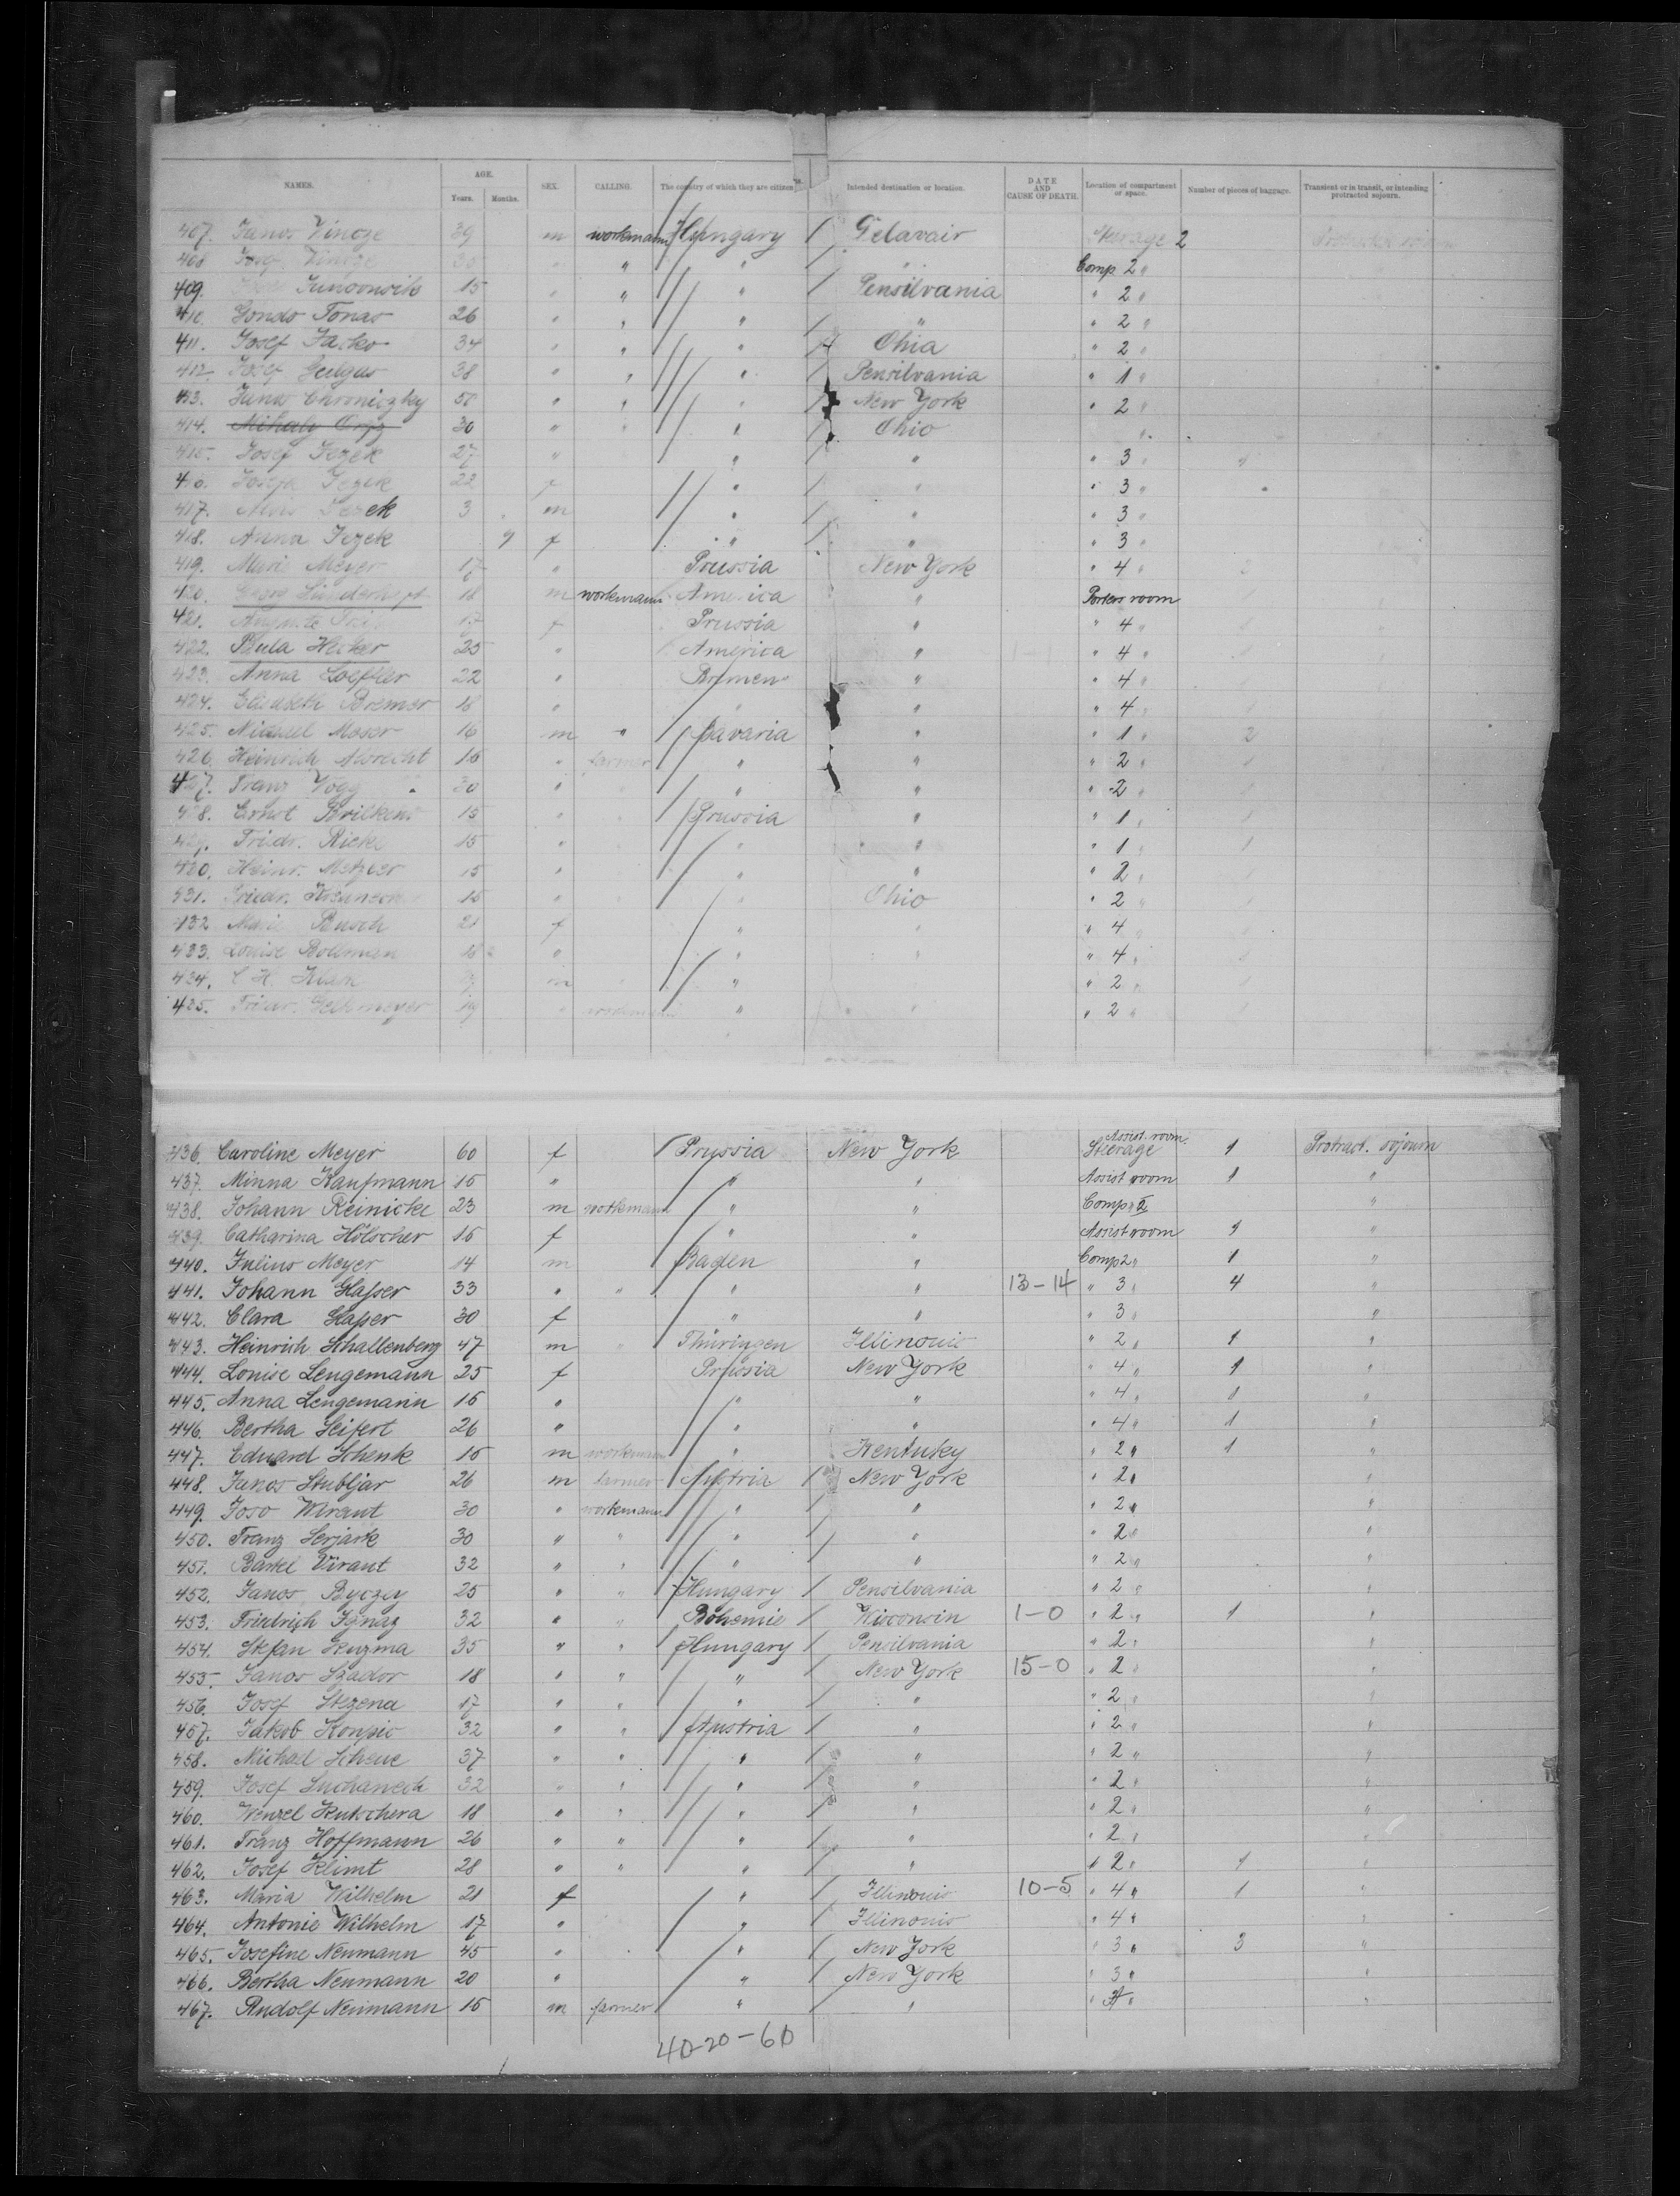 NAMES. AGE. Years. Months. SEX. CALLING. The country of which they are citizens. Intended destination or location. DATE AND CAUSE OF DEATH. Location of compartment or space. Number of pieces of baggage. Transient or in transit, or intending protracted sojourn.
407. Janos Vincze 39 m workmann Hungary / Delavair Steerage 2
408 Josef Vincze " " / " Comp. 2 "
409. 15 " " " / Pensilvania " 2 "
410. Gondo Tonas 26 " " " / " " 2 "
411. Josef Jasko 34 " " " Ohia " 2 "
412. Josef 38 " " " / Pensilvania " 1 "
413. Janos Chroniczky 50 " " " / New York " 2 "
414. Mihaly 30 " " " / Ohio "
415. Josef Jezek 27 " " / " " 3 "
416. Josefa Jezek 22 f " / " " 3 "
417. Jezek 3 m " / " " 3 "
418. Anna Jezek 9 f " / " " 3 "
419. Marie Meyer 17 " Prussia New York " 4 "
420. 18 m workmann America " room
421. Auguste 17 f Prussia " " 4 "
422. Paula Hecker 25 " America " " 4 "
423. Anna Loeffler 22 " Bremen " " 4 "
424. Elisabeth Bremer 18 " " " " 4 "
425. Michael Moser 16 m " Bavaria " " 1 " 2
426. Heinrich Albrecht 16 " farmer " " " 2 "
427. Franz Vogg 30 " " " " 2 "
428. Ernst Brilkens 15 " Prussia " " 1 "
429. Friedr. Ricke 15 " " " " 1 " 1
430. Heinr. Metzger 15 " " " " 2 "
431. Friedr. 15 " " Ohio " 2 "
432 Marie Busch 21 f " " " 4 "
433. Louise Bollmann " " " " 4 "
434. C. H. m " " 2 "
435. Friedr. 19 " workmann " " " 2 "
436. Caroline Meyer 60 f Prussia New York Assist. room Steerage 1 Protract. sojourn
437. Minna Kaufmann 15 " " " Assist room 1 "
438. Johann Reinicke 23 m workmann " " Comp. 2 "
439. Catharina Hölscher 15 f " " Assist room 1 "
440. Julius Meyer 14 m Baden " Comp 2 " 1 "
441. Johann Glasser 33 " " " " 13-14 " 3 " 4 "
442. Clara Glasser 30 f " " " 3 " "
443. Heinrich Schallenberg 47 m " Thüringen Illinouis " 2 " 1 "
444. Louise Lengemann 25 f Prussia New York " 4 " 1 "
445. Anna Lengemann 16 " " " " 4 " 1 "
446. Bertha Seifert 26 " " " " 4 " 1 "
447. Eduard Schenk 15 m workmann " Kentuky " 2 " 1 "
448. Janos Stubljar 26 m farmer Austria / New York " 2 " "
449. Joso Wiraut 30 " workmann " / " " 2 " "
450. Franz Serjark 30 " " " / " " 2 " "
451. Bartel Viraut 32 " " " / " " 2 " "
452. Janos Byczey 25 " " Hungary / Pensilvania " 2 " "
453. Friedrich Ignaz 32 " " Bohemie / Wisconsin 1-0 " 2 " 1 "
454. Stefan Kuzma 35 " " Hungary / Pensilvania " 2 " "
455. Janos Szador 18 " " " / New York 15-0 " 2 " "
456. Josef Stezena 17 " " " / " " 2 " "
457. Jakob Konpio 32 " " Austria / " " 2 " "
458. Michael Scheue 37 " " " / " " 2 " "
459. Josef Suchaneck 32 " " " / " " 2 " "
460. Wenzel Kutschera 18 " " " / " " 2 " "
461. Franz Hoffmann 26 " " " / " " 2 " "
462. Josef Klimt 28 " " " / " " 2 " 1 "
463. Maria Wilhelm 21 f " / Illinouis 10-5 " 4 " 1 "
464. Antonie Wilhelm 17 " " / Illinouis " 4 " "
465. Josefine Neumann 45 " " / New York " 3 " 3 "
466. Bertha Neumann 20 " " / New York " 3 " "
467. Rudolf Neumann 15 m farmer " / " " 3 " "
40-20-60